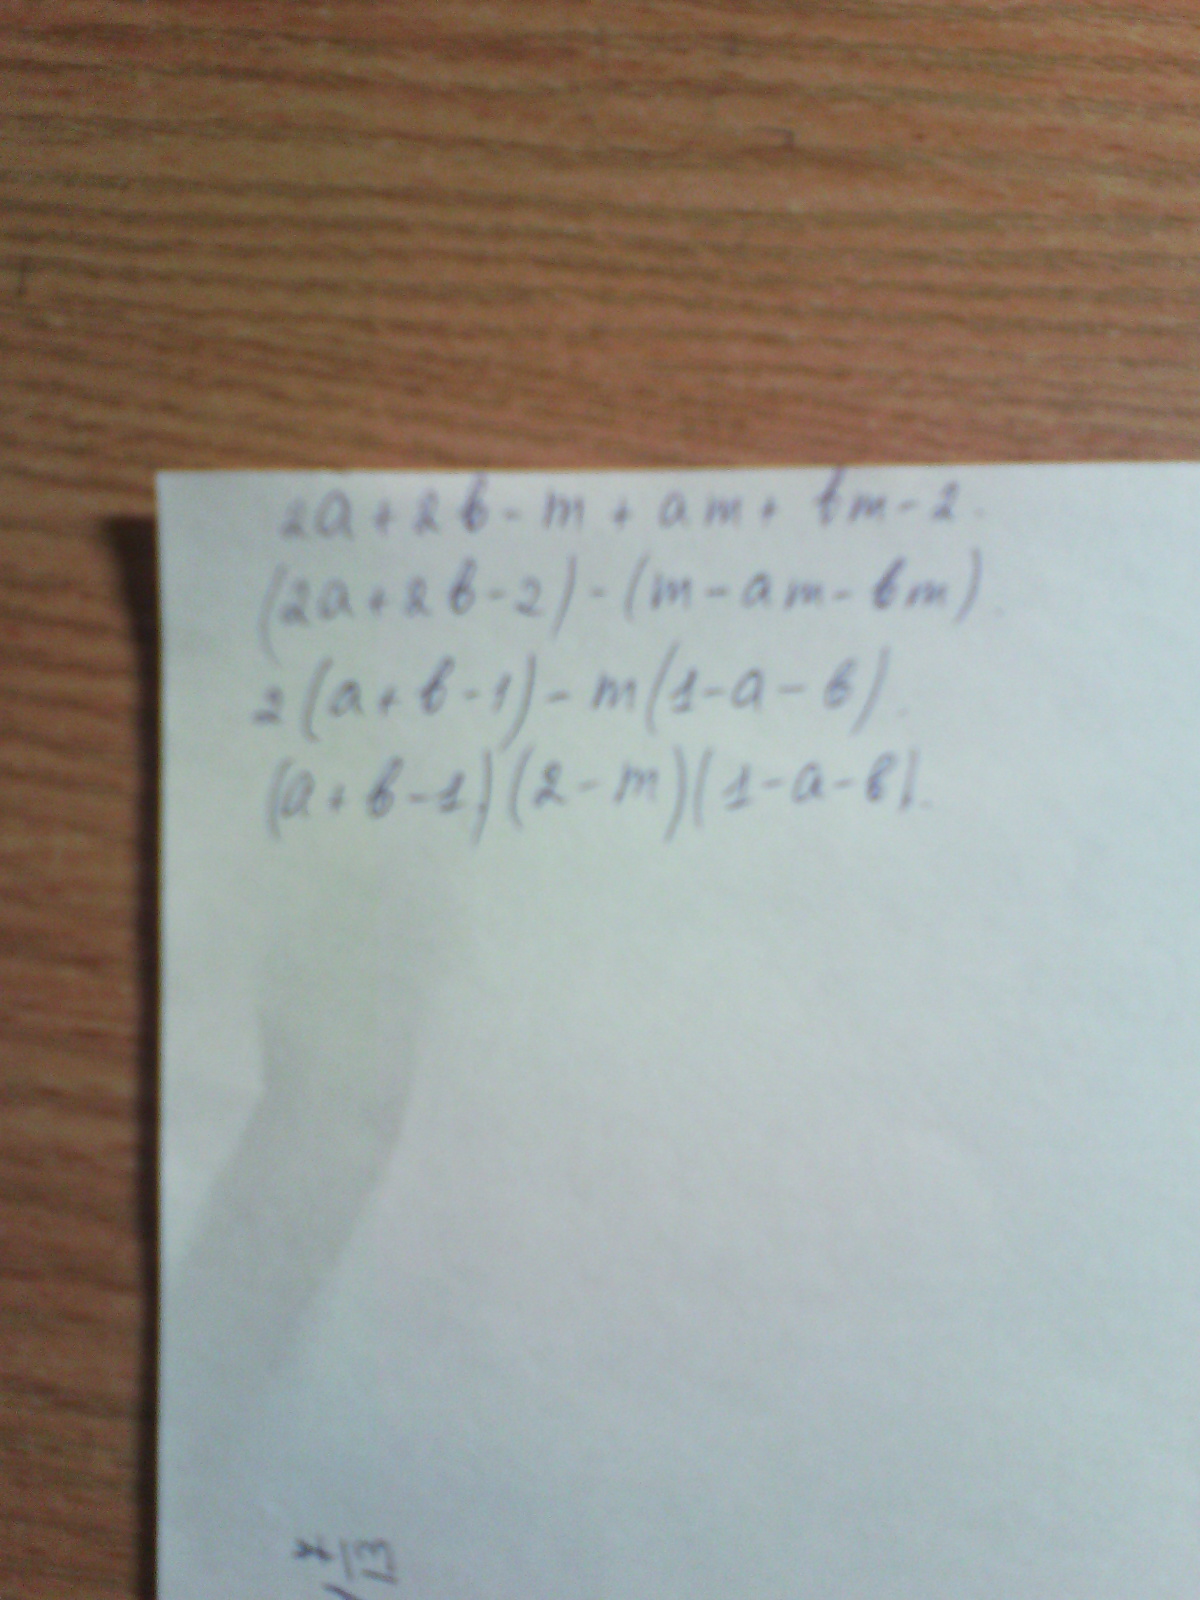 2a + 2b - m + am + bm - 2.
(2a + 2b - 2) - (m - am - bm).
2(a + b - 1) - m(1 - a - b).
(a + b - 1)(2 - m)(1 - a - b).
13